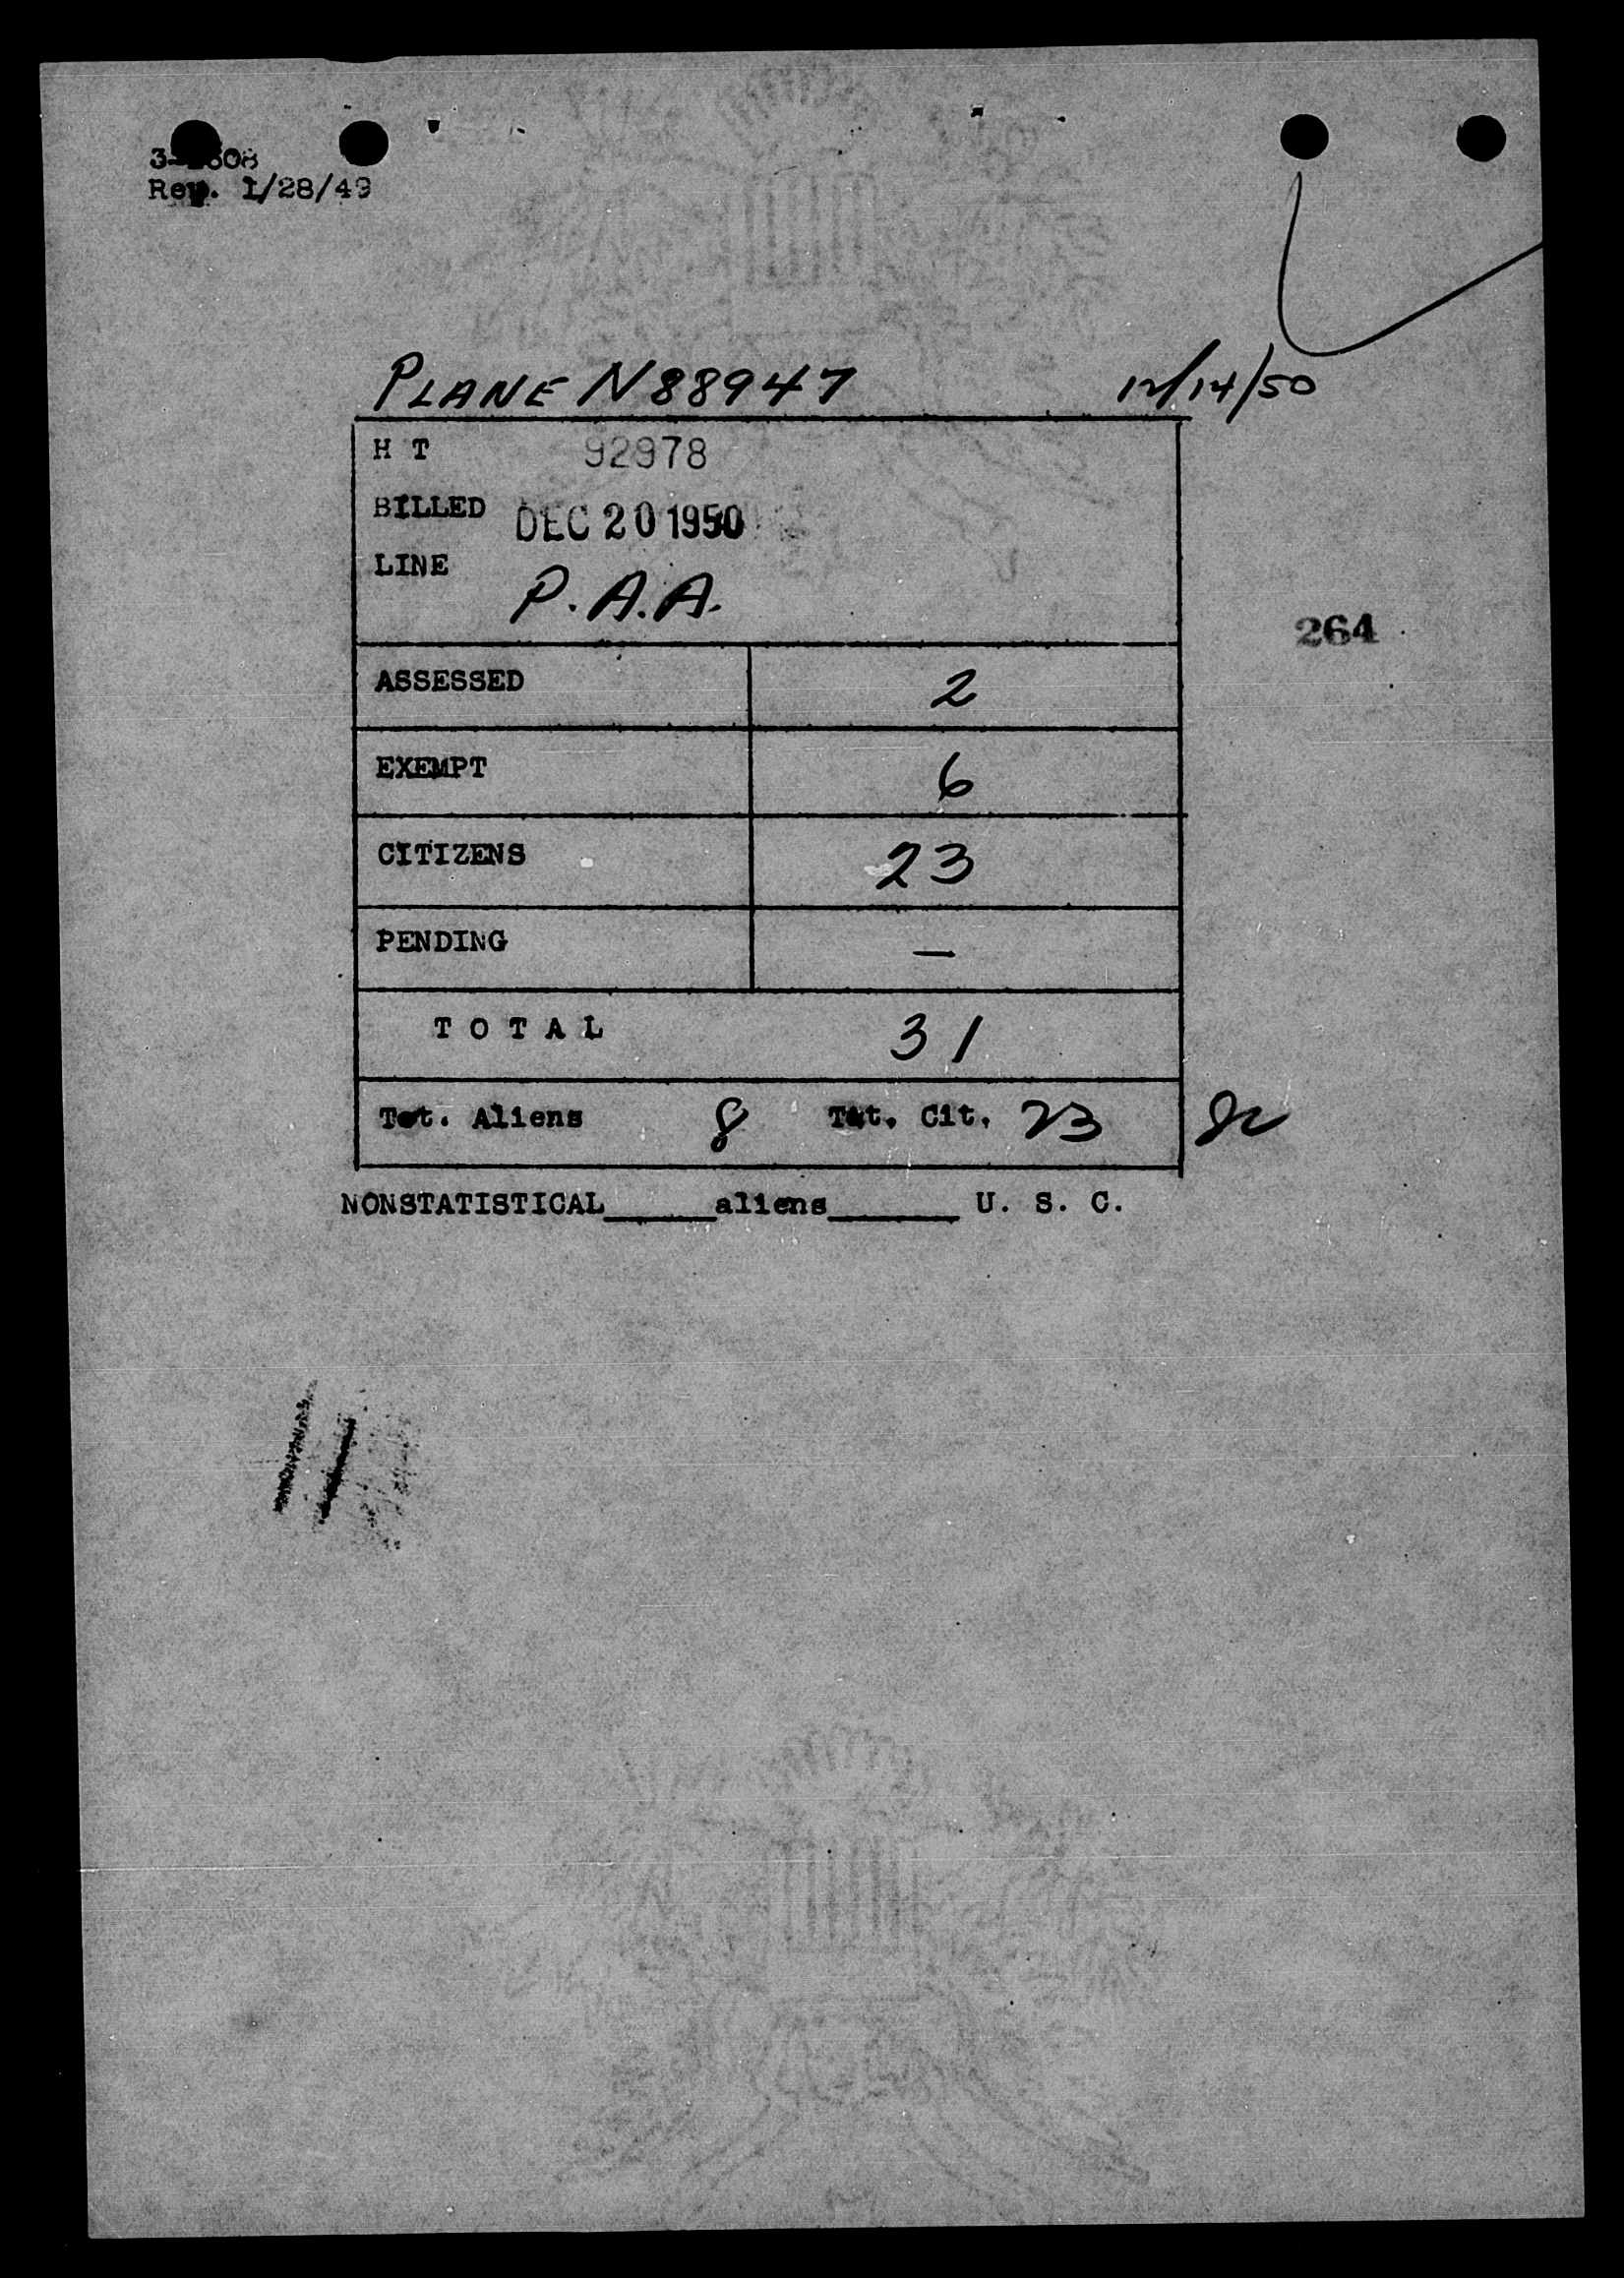 Rev. 1/28/49
PLANE N88947 12/14/50
H T 92978
BILLED DEC 20 1950
LINE P.A.A.
264
ASSESSED 2
EXEMPT 6
CITIZENS 23
PENDING —
T O T A L 31
Tot. Aliens 8 Tot. Cit. 23
NONSTATISTICAL______aliens_______ U. S. C.